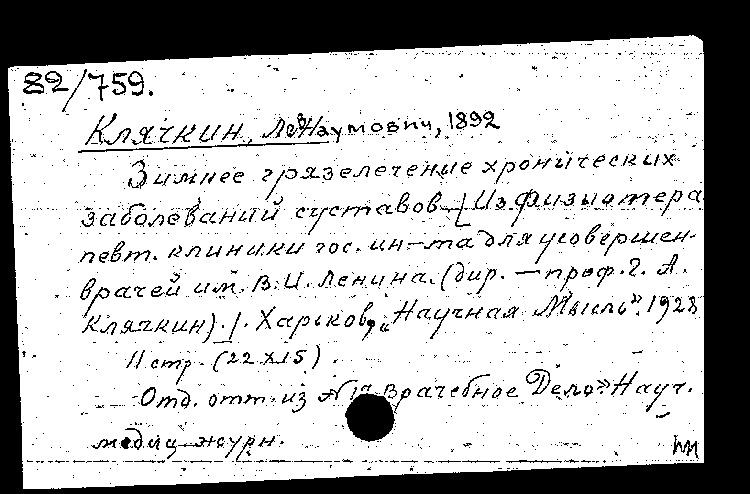 82/759.
Клячкин, Лев Наумович, 1892
Зимнее грязелечение хронических
заболеваний суставов – [Из физиотера
певт. клиники гос. ин-та для усовершен.
врачей им. В. И. Ленина. (дир. – проф. Г. А.
Клячкин).]. Харьков, „Научная Мысль". 1928
11 стр. (22×15).
Отд. отт. из № Врачебное Дело" Науч.
медиц. журн.